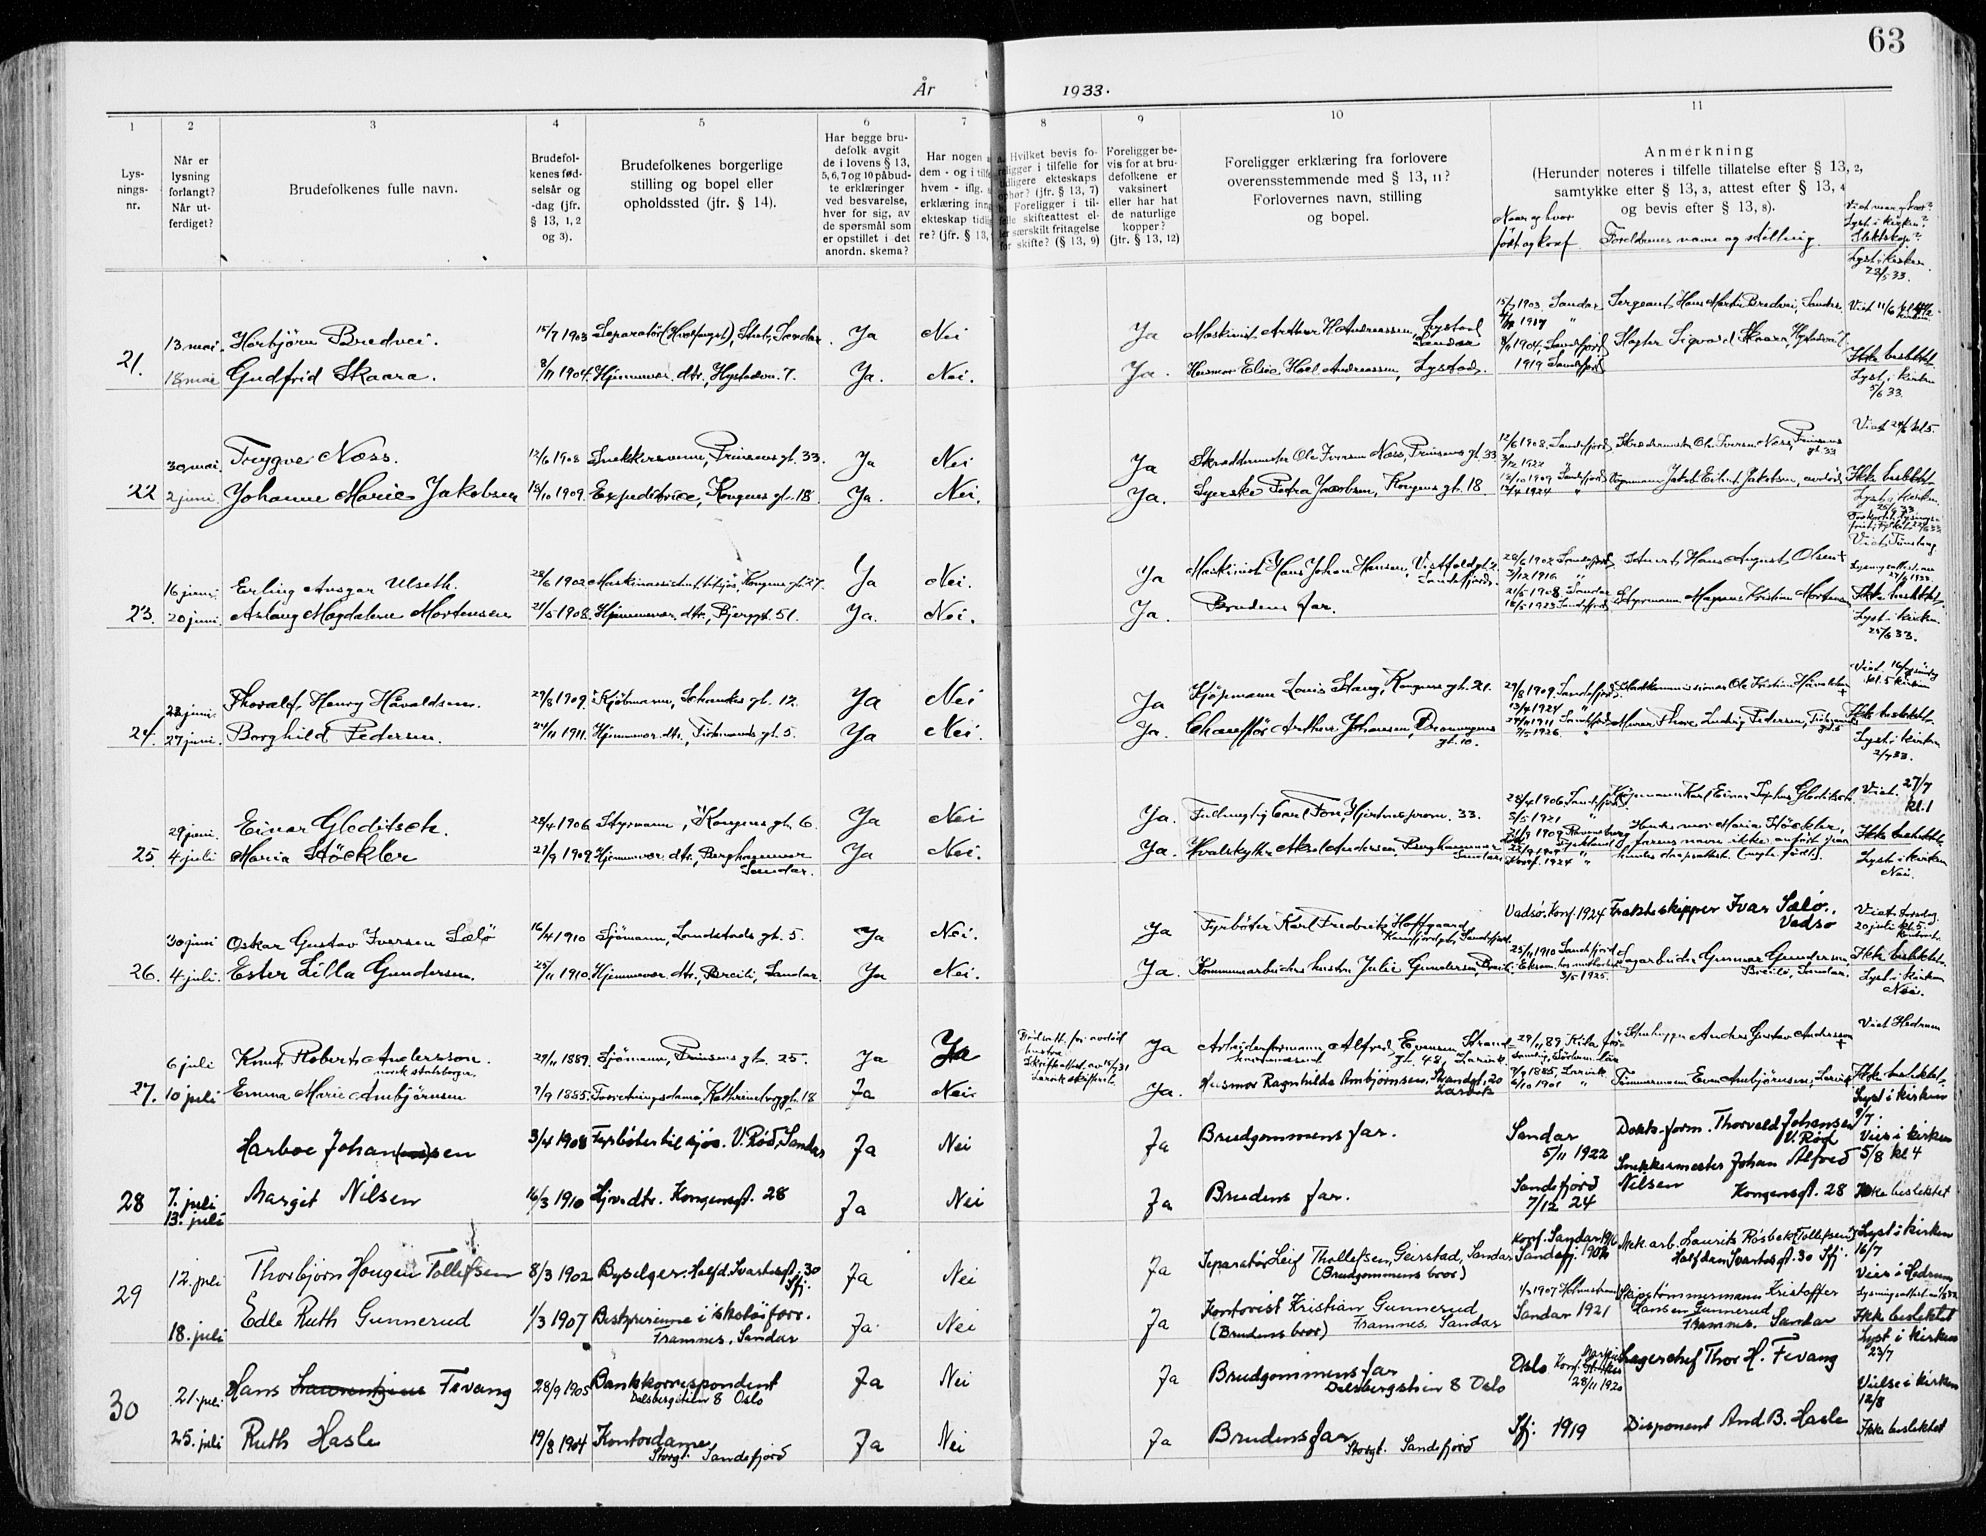 63
År 1933.
1 2 3 4 5 6 7 8 9 10 11
Lys-
nings-
nr.
Når er
lysning
forlangt?
Når ut-
ferdiget?
Brudefolkenes fulle navn.
Brudefol-
kenes fød-
selsår og
-dag (jfr.
§ 13, 1, 2
og 3).
Brudefolkenes borgerlige
stilling og bopel eller
opholdssted (jfr. § 14).
Har begge bru-
defolk avgit
de i lovens § 13,
5, 6, 7 og 10 påbud-
te erklæringer
ved besvarelse,
hver for sig, av
de spørsmål som
er opstillet i det
anordn. skema?
Har nogen a
dem - og i tilfe
hvem - iflg. 
erklæring inng
ekteskap tidlig
re? (jfr. § 13,
Hvilket bevis fo-
religger i tilfelle for
tidligere ekteskaps
ophør? (jfr. § 13, 7)
Foreligger i til-
felle skifteattest el-
ler særskilt fritagelse
for skifte? (§ 13, 9)
Foreligger be-
vis for at bru-
defolkene er
vaksinert
eller har hat
de naturlige
kopper?
(jtr. § 13, 12)
Foreligger erklæring fra forlovere
overensstemmende med § 13, 11?
Forlovernes navn, stilling
og bopel.
Anmerkning
(Herunder noteres i tilfelle tillatelse efter § 13, 2,
samtykke efter § 13, 3, attest efter § 13, 4
og bevis efter § 13, 8).
Naar og hvor
født og konf.
Foreldrenes navn og stilling.
Viet naar og hvor?
Lyst i kirken?
Slektskap?
Lyst i kirken
28/5 33.
13 mai. Herbjörn Bredvei. 15/7 1903 Separatör (Hvalfangst), Sandar. Ja Nei Ja Maskinist Arthur H. Andreassen, Lystad Sandar 15/7 1903. Sandar Sergeant Hans Martin Bredvei, Sandar. Viet 11/6
21. 18 mai Gudfrid Skaara. 8/11 1904. Hjemmevær. dtr., Hystadvn. 7. Ja. Nei. Ja. Husmor Elsie Hoel Andreassen, Lystad. 8/11 1904, Sandefjord 1919 Sandefjord Sigvard Skaara, Hystadvn. Ikke beslektet.
Lyst i kirken
5/6 33.
30 mai. Trygve Næss. 12/6 1908 Snekkersvenn, Prinsens gt. 33. Ja Nei Ja Skreddermester Ole Iversen Næss, Prinsens gt. 33 12/6 1908. Sandefjord 1922 Skreddermester Ole Iversen Næss, Prinsens gt. 33 Viet kl. 5.
22 2 juni Johanne Marie Jakobsen 18/10 1909. Expeditrice, Kongens gt. 18. Ja. Nei. Ja. Syerske Petra Jacobsen, Kongens gt. 18. 1909 Sandefjord 1924 Jakob Jakobsen, avdöd. Ikke beslektet.
Lyst i kirken
25/6 33.
Viet i Tönsberg
16 juni Erling Ansgar Ulseth. 28/6 1902 Maskinassistent tilsjös, Kongens gt. 27. Ja Nei. Ja Maskinist Hans Johan Hansen, Vestfoldgt. Sandefjord. 28/6 1902 Sandefjord 1916 Hans August Olsen
23. 20 juni. Aslaug Magdalene Mortensen 21/5 1908. Hjemmevær. dtr., Bjerggt. 51. Ja. Nei. Ja. Brudens far. 21/5 1908. Sandar 1923 Sandefjord Styrmann Magnus Kristian Mortensen Ikke beslektet.
Lyst i kirken.
25/6 33.
23 juni. Thoralf Henry Håvaldsen. 29/8 1909. Kjöbmann, Schankes gt. 12. Ja Nei Ja Kjöpmann Louis Haug, Kongens gt. 21. 29/8 1909. Sandefjord 1924 Ole Kristian Håvaldsen Viet 16/7 kl. 5 kirken
24. 27 juni. Borghild Pedersen. 24/11 1911. Hjemmevær. dtr., Tidemands gt. 5. Ja Nei. Ja. Chauffför Arthur Johansen, Dronningens gt. 10. 24/11 1911 Sandefjord 1926 Murer Thore Ludvig Pedersen, Tidemands gt. 5 Ikke beslektet.
Lyst i kirken
2/7 33.
29 juni. Einar Gloditsch. 28/4 1906 Styrmann, Kongens gt. 6. Ja Nei Ja. 33. 28/4 1906. Sandefjord 5/5 1921 Kjöpmann Karl Einar Gloditsch Viet. 27/7 kl. 1
25 4 juli Maria Stöckler 21/9 1909 Hjemmevær. dtr., Berghammer Sandar. Ja Nei. Ja. Hvalskytter Aksel Andersen, Berghammer Sandar 21/9 1909 Ravensburg Tyskland Konf. 1924 Hendes mor Maria Stöckler, farens navn ikke anfört paa hendes daapsattest. Ikke beslektet.
Lyst i kirken
Nei.
30 juni Oskar Gustav Iversen Sælö 16/4 1910 Sjömann, Landstads gt. 5. Ja Nei. Ja Fyrböter Karl Fredrik Hoffgaard, Sandefjord. Vadsö. Konf. 1924 Fraktskipper Ivar Sælö, Vadsö Viet Torsdag 20 juli kl. 5
26. 4 juli. Ester Lilla Gundersen. 25/11 1910. Hjemmevær. dtr., Breili, Sandar. Ja Nei. Ja. Kommunearbeiders hustru Julie Gundersen, Breili 25/11 1910 Sandefjord 3/5 1925. Lagerarbeider Gunnar Gundersen Breili, Sandar. Ikke beslektet.
Lyst i kirken
Nei.
6 juli Knut Robert Andersson. norsk statsborger 29/11 1889. Sjömann, Prinsens gt. 25. Ja Ja Dödsatt. for avdöd hustru. Skifteattest av 15/7 31 Larvik skifterett. Ja Arbeidsformann Alfred Evensen Strand gt. 48, Larvik 29/11 89 Anders Gustav Andersson Viet Hedrum
27. 10 juli Emma Marie Ambjörnsen 7/9 1885. Forretningsdame, Kathrineborggt. 18 Ja Nei Ja. Husmor Ragnhilda Ambjörnsen, Strandgt. 20 Larvik 7/9 1885. Larvik 6/10 1901 Tömmermann Even Ambjörnsen, Larvik Ikke beslektet.
Lyst i kirken
9/7.
Harboe Johan(ne)sen 3/4 1908 Fyrböter til sjös. V. Röd, Sandar Ja Nei Ja Brudgommens far. Sandar 5/11 1922 Dokk-form. Thorvald Johansen V. Röd Vies i kirken 5/8 kl 4
28 7. juli 13. juli Margit Nilsen 16/3 1910 Hjv. dtr. Kongensgt. 28 Ja Nei Ja Brudens far. Sandefjord 7/12 24 Snekkermester Johan Alfred Nilsen Kongensgt. 28 Ikke beslektet
Lyst i kirken
16/7
12. juli Thorbjörn Haugen Tollefsen 8/3 1902 Byselger. Halfd. Svartesgt. 30 Sfj. Ja Nei Ja Separatör Leif Thollefsen, Geirstad, Sandar (Brudgommens bror) Konf. Sandar 1916 Sandefj. 1902 Mek. arb. Laurits Rösbek Tollefsen Halfdan Svartesgt. 30 Sfj. Vies i Hedrum
29 18. juli Edle Ruth Gunnerud 1/3 1907 Bestyrerinne i skotöiforr. Framnes, Sandar Ja Nei Ja Kontorist Kristian Gunnerud Framnes, Sandar (Brudens bror) 1/3 1907 Holmestrand Sandar 1921 Skipstömmermann Kristoffer Hansen Gunnerud Framnes, Sandar Ikke beslektet
Lyst i kirken
23/7
21. juli Hans Laurentzius Fevang 28/9 1905 Bankkorrespondent Dalsbergstien 8 Oslo Ja Nei Ja Brudgommens far Dalsbergstien 8 Oslo Oslo Konf. 28/11 1920 Lagerchef Thor H. Fevang Vielse i kirken 12/8
30 25. juli Ruth Hasle 19/8 1904 Kontordame Storgt. Sandefjord Ja Nei Ja Brudens far Storgt. Sandefjord Sfj. 1919 Disponent And. B. Hasle Ikke beslektet